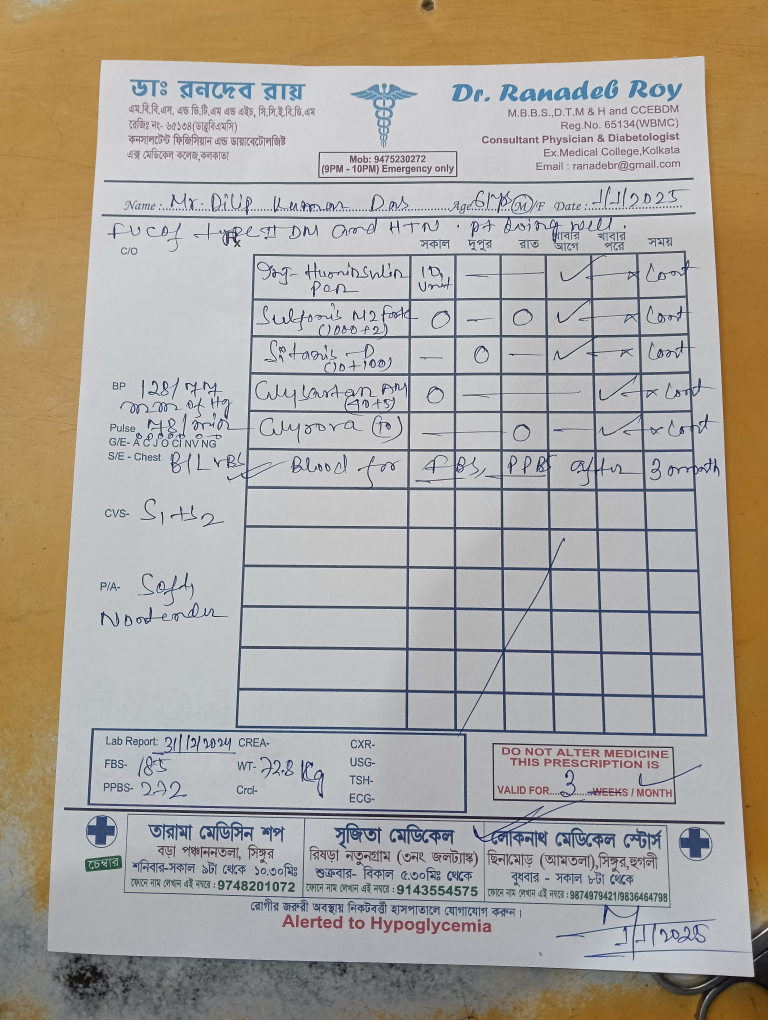 ডাঃ রনদেব রায়
এম.বি.বি.এস. এন্ড ডি.টি.এম এন্ড এইচ, সি.সি.ই.বি.ডি.এম
রেজিঃ নং- ৬৫১৩৪(ডাব্লুবিএমসি)
কনসালটেন্ট ফিজিসিয়ান এন্ড ডায়াবেটোলজিষ্ট
এক্স মেডিকেল কলেজ,কলকাতা
Mob: 9475230272
(9PM - 10PM) Emergency only)
Dr. Ranadeb Roy
M.B.B.S.,D.T.M & H and CCEBDM
Reg.No. 65134(WBMC)
Consultant Physician & Diabetologist
Ex.Medical College,Kolkata
Email : ranadebr@gmail.com
Name : Mr. Dilip Kumar Das Age 61 yrs M/F Date : 1/1/2025
FUC of type II DM and HTN. pt doing well.
C/O Rx সকাল দুপুর রাত খাবার আগে খাবার পরে সময়
Inj- Huminsulin Pen 10 Unit — — ✓ × Cont
(1000+2) O — O ✓ × Cont
(10+100) — O — ✓ × Cont
BP 128/77 mm of Hg
AM (40+5) O — — ✓ × Cont
Pulse 78/min
(10) — — O ✓ × Cont
G/E- A C J O Cl NV NG
S/E - Chest B/L VBS
Blood for FBS, PPBS after 3 month
CVS- S1+S2
P/A- Soft,
Nontender
Lab Report: 31/12/2024 CREA- CXR-
FBS- 185 WT- 72.8 Kg USG-
PPBS- 272 Crcl- TSH-
ECG-
DO NOT ALTER MEDICINE
THIS PRESCRIPTION IS
VALID FOR....3....WEEKS / MONTH
চেম্বার
তারামা মেডিসিন শপ
বড়া পঞ্চাননতলা, সিঙ্গুর
শনিবার-সকাল ৯টা থেকে ১০.৩০মিঃ
ফোনে নাম লেখান এই নম্বরে : 9748201072
সৃজিতা মেডিকেল
রিষড়া নতুনগ্রাম (৩নং জলট্যাঙ্ক)
শুক্রবার- বিকাল ৫.৩০মিঃ থেকে
ফোনে নাম লেখান এই নম্বরে : 9143554575
লোকনাথ মেডিকেল স্টোর্স
ছিনামোড় (আমতলা),সিঙ্গুর,হুগলী
বুধবার - সকাল ৮টা থেকে
ফোনে নাম লেখান এই নম্বরে :9874979421/9836464798
রোগীর জরুরী অবস্থায় নিকটবর্তী হাসপাতালে যোগাযোগ করুন।
Alerted to Hypoglycemia
1/1/2025